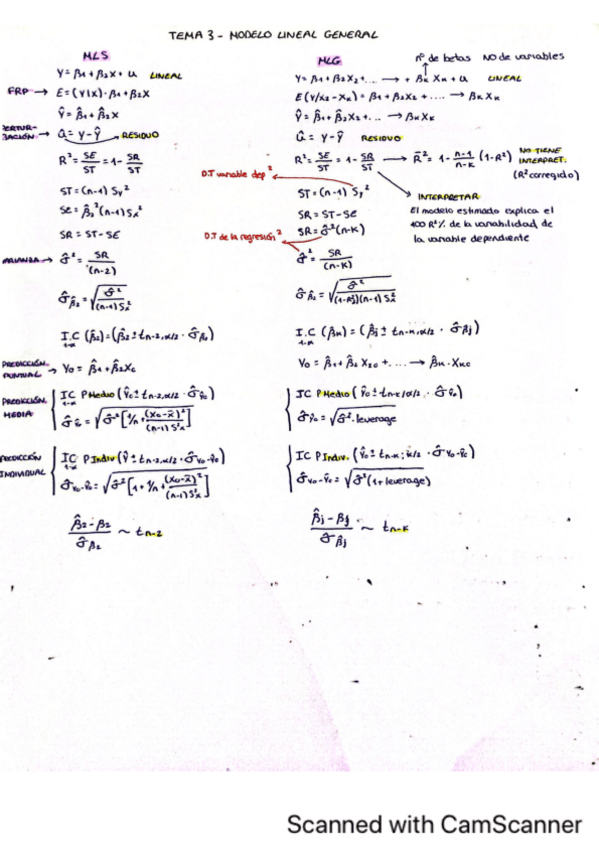 TEMA 3 - MODELO LINEAL GENERAL
MLS
Y = β1 + β2X + u LINEAL
FRP → E = (Y|X) = β1 + β2X
Ŷ = β̂1 + β̂2X
PERTURBACIÓN → û = Y - Ŷ → RESIDUO
R² = SE/ST = 1 - SR/ST
ST = (n-1) Sy²
SE = β̂2² (n-1) Sx²
SR = ST - SE
σ̂² = SR/(n-2)
σ̂β̂2 = √(σ̂²/((n-1) Sx²))
I.C 1-α (β̂2) = (β̂2 ± tn-2, α/2 · σ̂β2)
PREDICCIÓN PUNTUAL → Y0 = β̂1 + β̂2X0
PREDICCIÓN MEDIA
IC 1-α PMedio (Ŷ0 ± tn-2, α/2 · σ̂ŷ0)
σ̂ŷ0 = √(σ̂² [1/n + (X0-X̄)²/((n-1) S²x)])
PREDICCIÓN INDIVIDUAL
IC 1-α PIndiv (Ŷ ± tn-2, α/2 · σ̂Y0-ŷ0)
σ̂Y0-ŷ0 = √(σ̂² [1 + 1/n + (X0-X̄)²/((n-1) S²x)])
(β̂2 - β2)/σ̂β̂2 ~ tn-2
MLG
nº de betas NO de variables
Y = β1 + β2X2 + ... → + βK XK + u LINEAL
E (Y/X2 - XK) = β1 + β2X2 + .... → βK XK
Ŷ = β̂1 + β̂2X2 + ... → βK XK
û = Y - Ŷ RESIDUO
R² = SE/ST = 1 - SR/ST → R̄² = 1 - (n-1)/(n-K) (1-R²) NO TIENE INTERPRET.
(R² corregido)
D.T variable dep²
ST = (n-1) Sy²
INTERPRETAR
El modelo estimado explica el
100 R²% de la variabilidad de
la variable dependiente
SR = ST - SE
D.T de la regresión²
SR = σ̂² (n-K)
σ̂² = SR/(n-K)
σ̂β̂2 = √(σ̂²/((1-Rj²)(n-1) Sx²))
I.C 1-α (βK) = (β̂j ± tn-K, α/2 · σ̂β̂j)
Y0 = β̂1 + β̂2 X20 + .... → β̂K · XK0
IC PMedio (Ŷ0 ± tn-K/α/2 · σ̂ŷ0)
σ̂Ŷ0 = √(σ̂² · leverage)
IC PIndiv. (Ŷ0 ± tn-K; α/2 · σ̂Y0-ŷ0)
σ̂Y0-Ŷ0 = √(σ̂² (1 + leverage))
(β̂j - βj)/σ̂β̂j ~ tn-K
Scanned with CamScanner